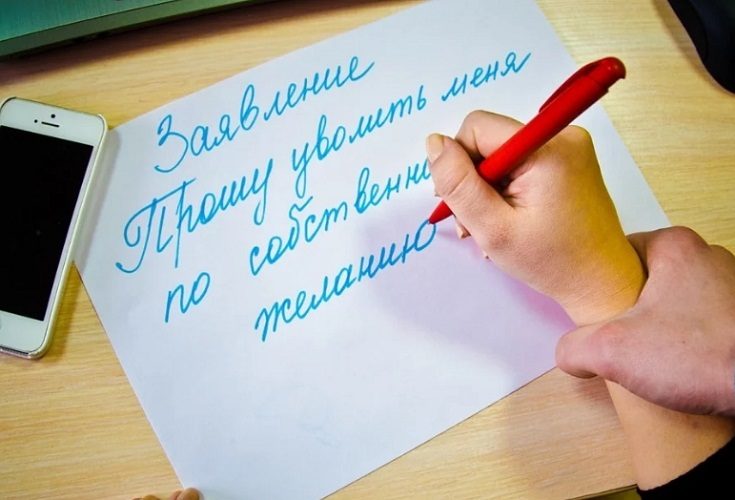 Заявление
Прошу уволить меня
по собственн
желанию